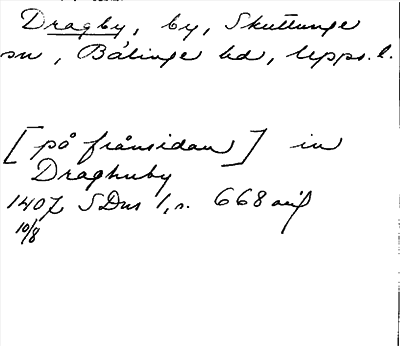 Dragby, by, Skuttunge
sn, Bälinge hd, Upps. l.
[på frånsidan] in
Draghnby
1407 SDns 1, s. 668 avs
10/8